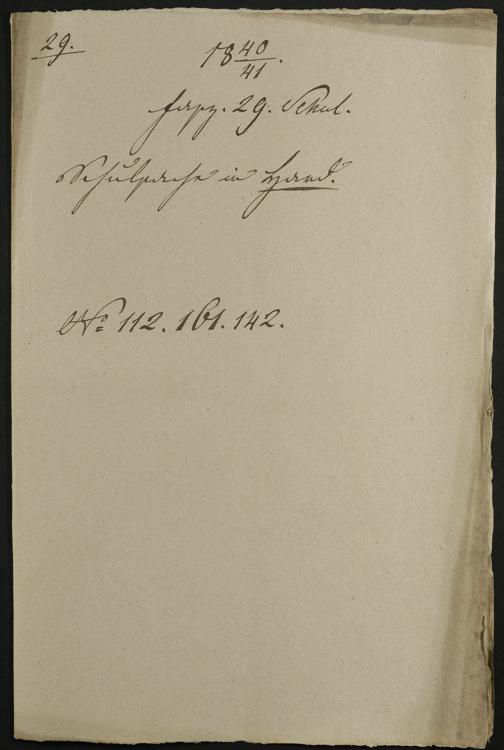 29.
18 40/41.
Fasz. 29. Schul.
Schulsache in Hard.
No 112. 161. 142.